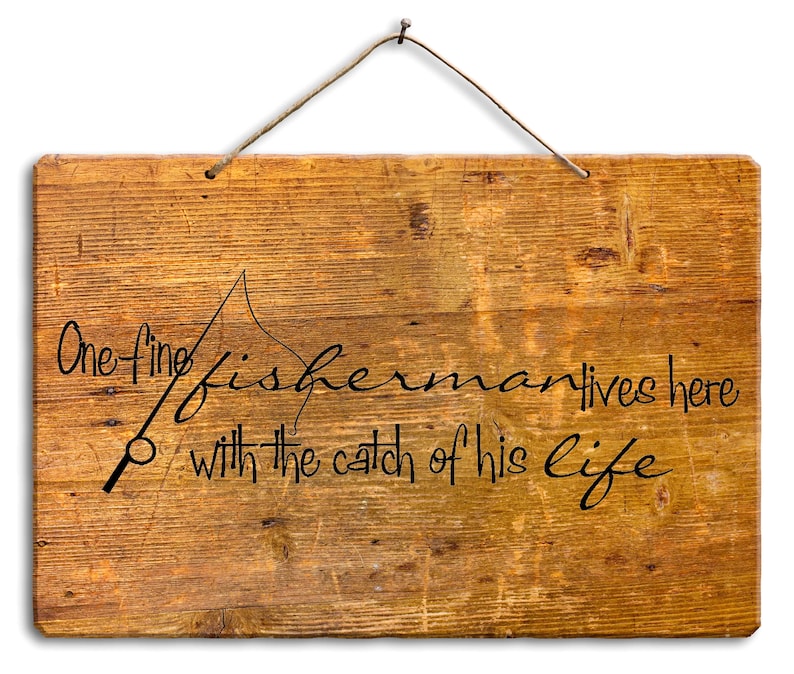 One fine fisherman lives here
with the catch of his life